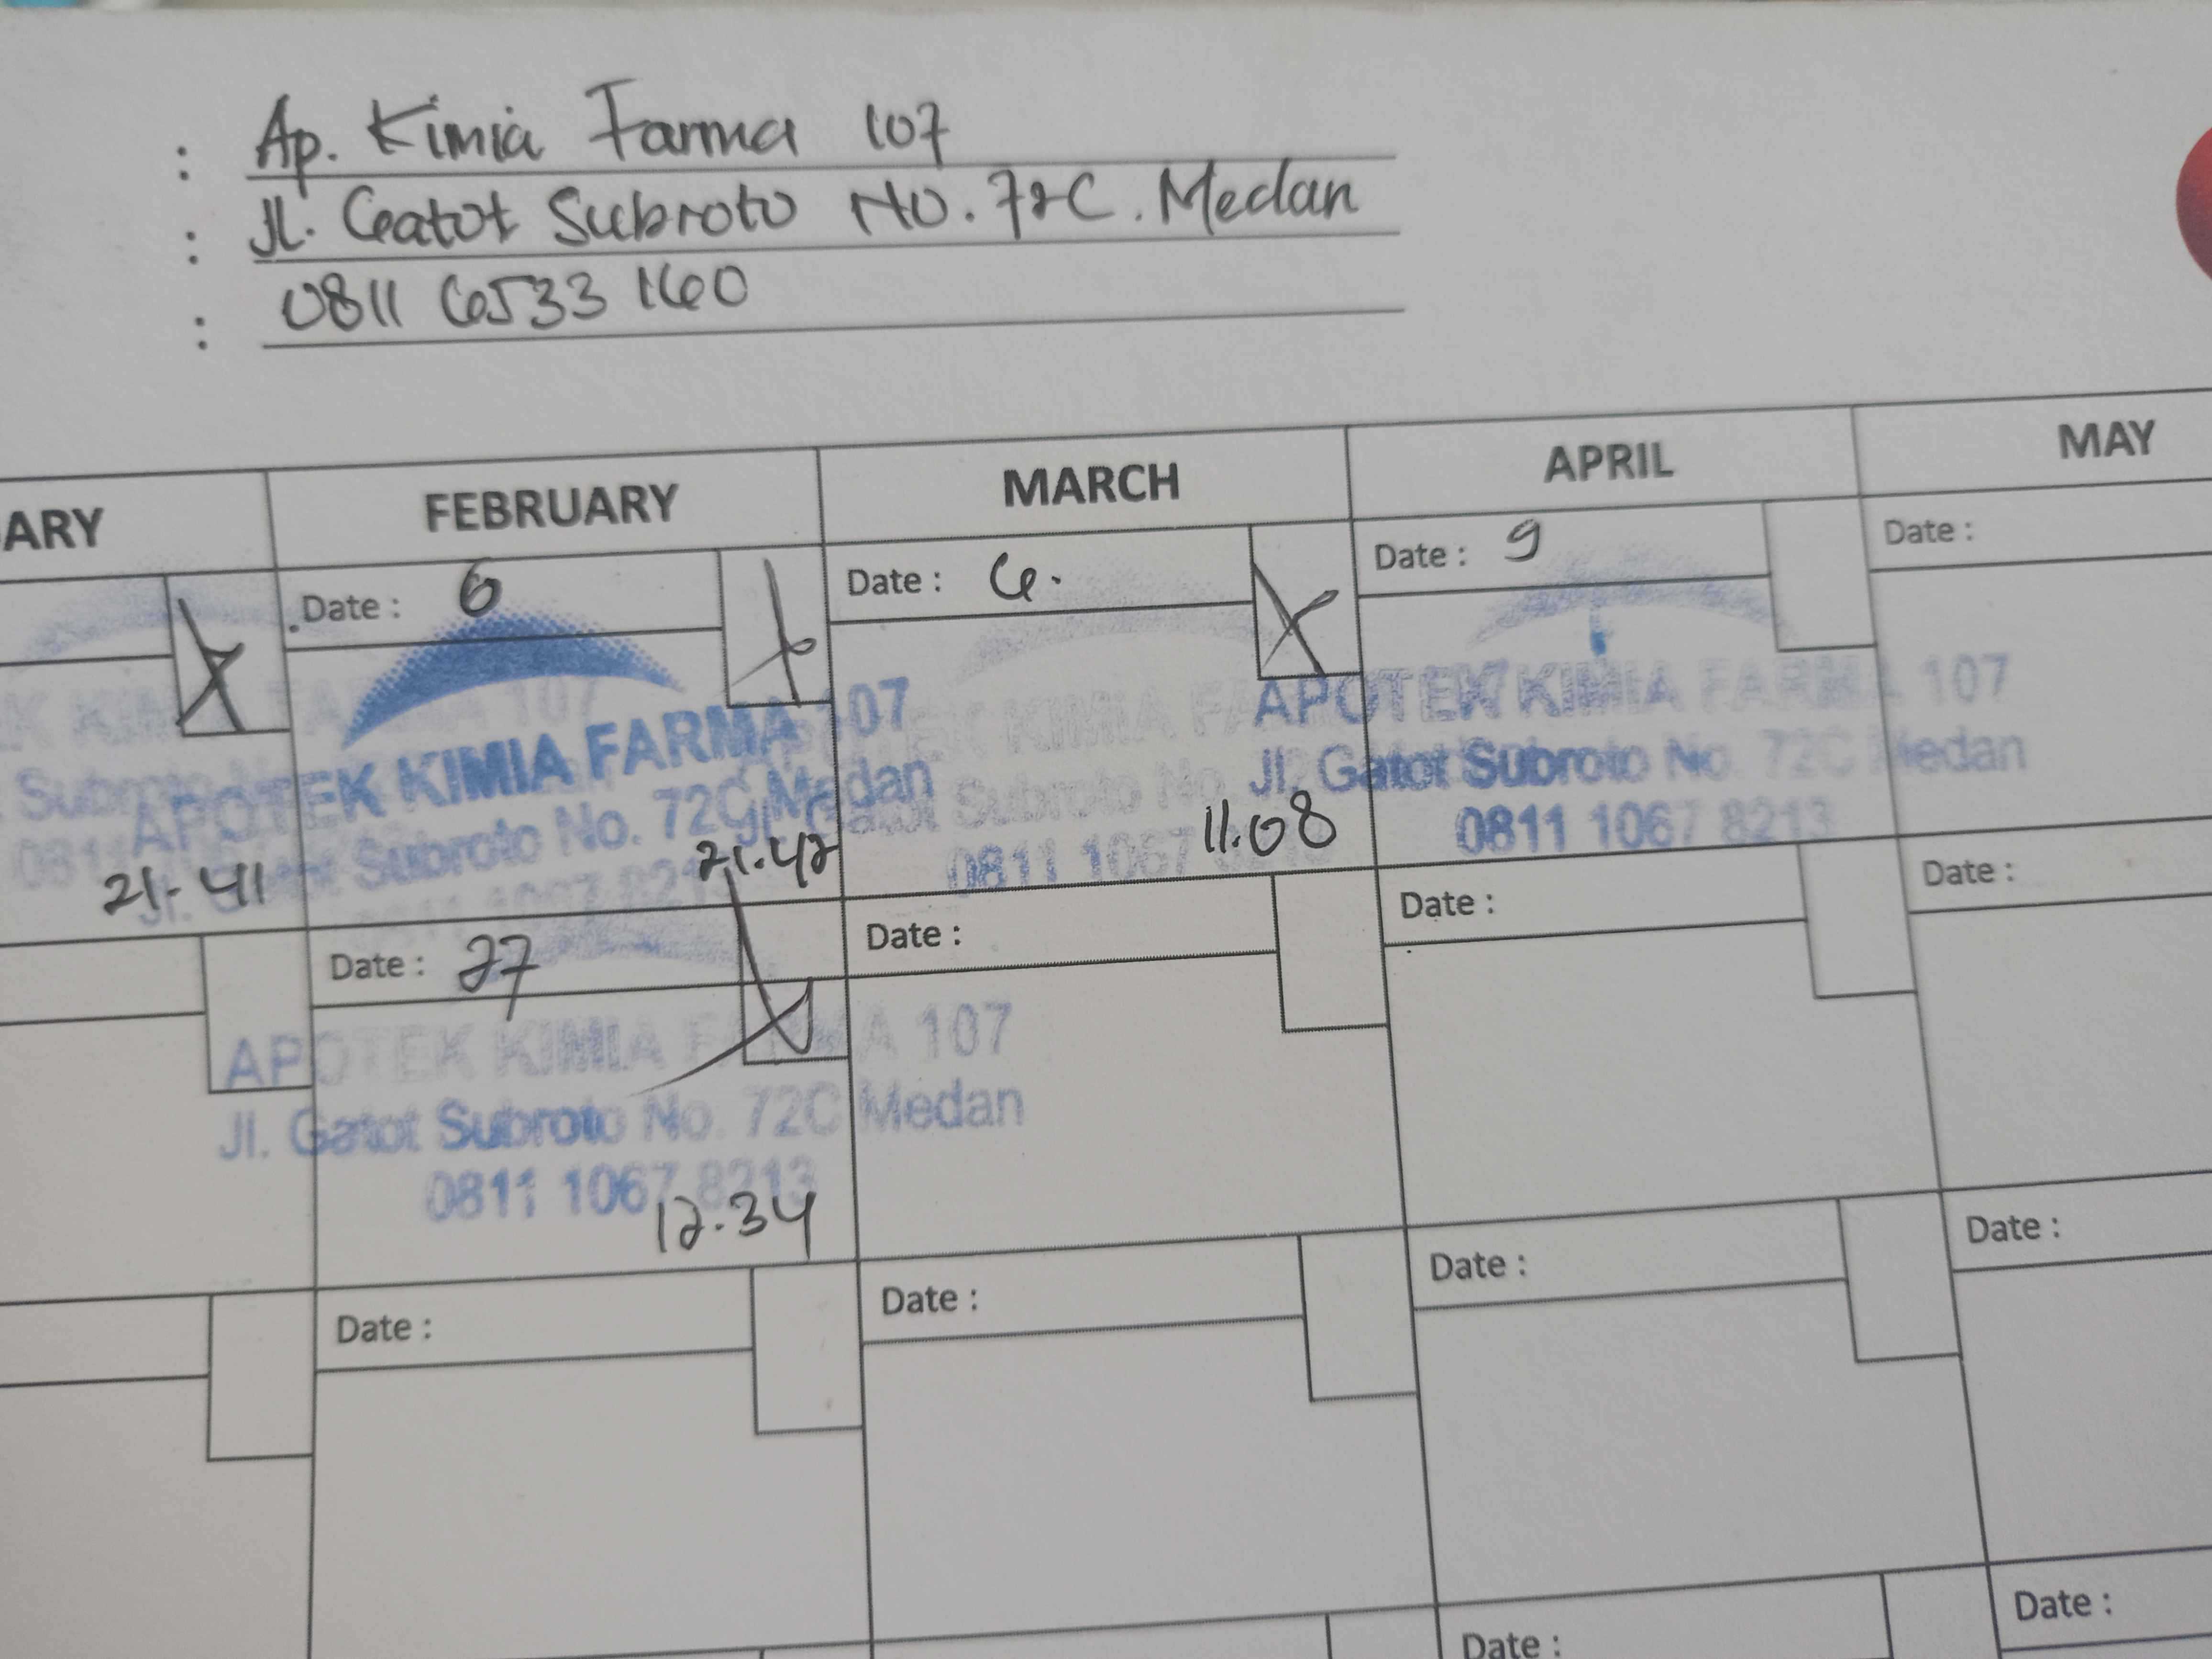 : Ap. Kimia Farma 107
: Jl. Gatot Subroto No. 72C. Medan
: 0811 6533 160
ARY
FEBRUARY
MARCH
APRIL
MAY
Date : 6
Date : 6.
Date : 9
Date :
K KIMIA FARMA 107
Subroto No
0811
21.41
APOTEK KIMIA FARMA 107
Jl. Gatot Subroto No. 72C Medan
0811 1067 8213
21.42
APOTEK KIMIA FARMA 107
Jl. Gatot Subroto No. 72C
0811 1067 8213
11.08
APOTEK KIMIA FARMA 107
Jl. Gatot Subroto No. 72C Medan
0811 1067 8213
Date : 27
Date :
Date :
Date :
APOTEK KIMIA FARMA 107
Jl. Gatot Subroto No. 72C Medan
0811 1067 8213
12.34
Date :
Date :
Date :
Date :
Date :
Date :